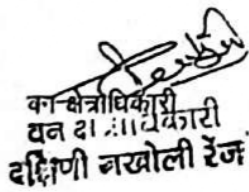 वन क्षेत्राधिकारी
वन
दक्षिणी जखोली रेंज